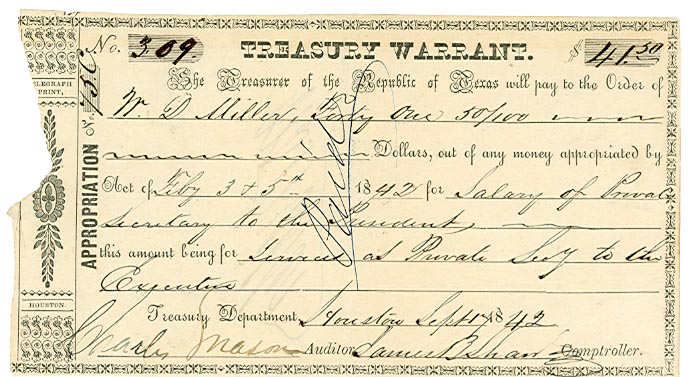 No. 309. TREASURY WARRANT. $ 41.50
The Treasurer of the Republic of Texas will pay to the Order of
W. D. Miller, Forty One 50/100
Dollars, out of any money appropriated by
Act of Feby 3 & 5th 1842 for Salary of Private
Secretary to the President
this amount being for Services as Private Secy to the
Executive
Treasury Department, Houston Sept 1842
Charles Mason Auditor James B Shaw Comptroller.
APPROPRIATION No.
TELEGRAPH
PRINT,
HOUSTON.